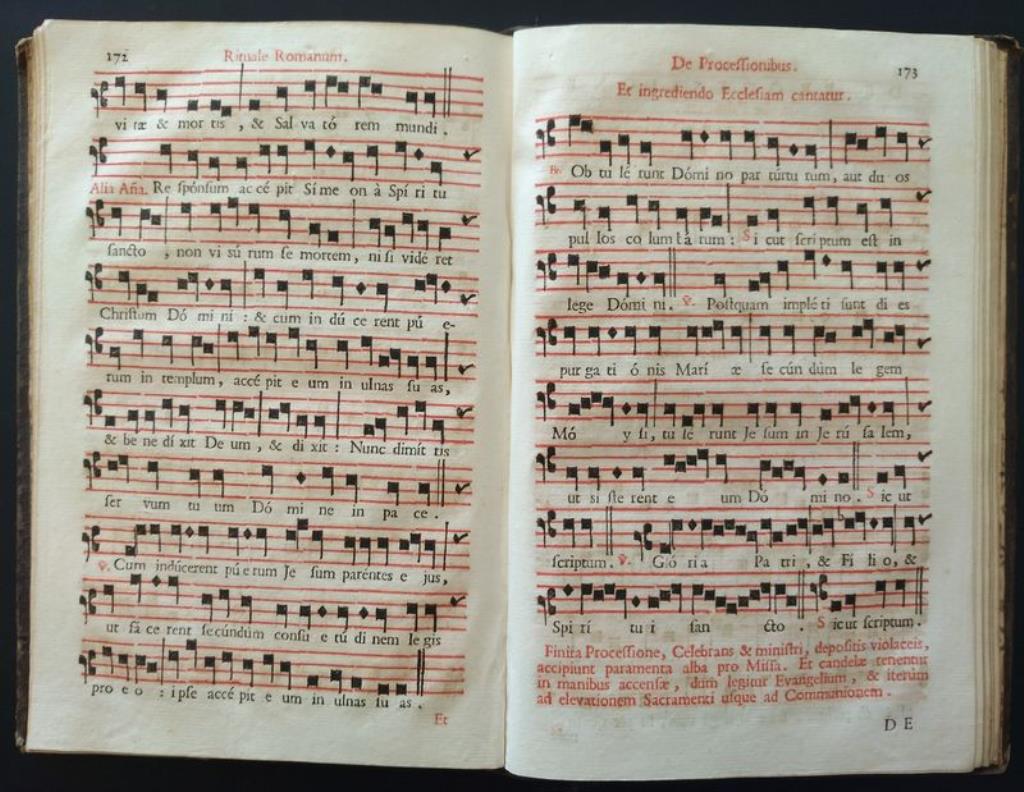 172
Rituale Romanum.
vi tæ & mor tis , & Sal va tó rem mundi .
Alia Aña. Re spónsum ac cé pit Síme on à Spí ri tu
sancto , non vi sú rum se mortem , ni si vidé ret
Christum Dó mi ni : & cum in dú ce rent pú e-
rum in templum, accé pit e um in ulnas su as,
& be ne dí xit De um , & di xit : Nunc dimít tis
ser vum tu um Dó mi ne in pa ce .
℣. Cum indúcerent pú e rum Je sum paréntes e jus,
ut fá ce rent secúndùm consu e tú di nem le gis
pro e o : ipse accé pit e um in ulnas su as .
Et
De Processionibus.
173
Et ingrediendo Ecclesiam cantatur.
℟. Ob tu lé runt Dómi no par túrtu rum, aut du os
pul los co lum bá rum : S i cut scri ptum est in
lege Dómi ni. ℣. Postquam implé ti sunt di es
pur ga ti ó nis Marí æ se cún dùm le gem
Mó y si, tu lé runt Je sum in Je rú sa lem,
ut si ste rent e um Dó mi no . S ic ut
scriptum. ℣. Gló ri a Pa tri , & Fí li o, &
Spi rí tu i san cto . S icut scriptum .
Finita Processione, Celebrans & ministri, depositis violaceis,
accipiunt paramenta alba pro Missa. Et candelæ tenentur
in manibus accensæ , dum legitur Evangelium , & iterùm
ad elevationem Sacramenti usque ad Communionem .
D E